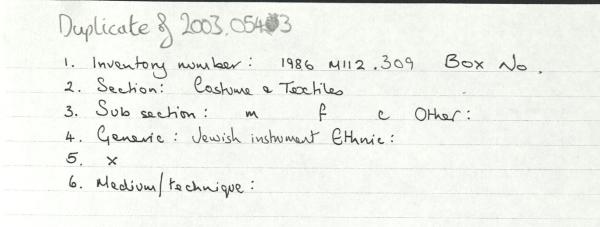 Duplicate of 2003.0543
1. Inventory number: 1986 M112.309 Box No.
2. Section: Costume & Textiles
3. Sub section: m f c Other:
4. Generic: Jewish instrument Ethnic:
5. x
6. Medium/technique: